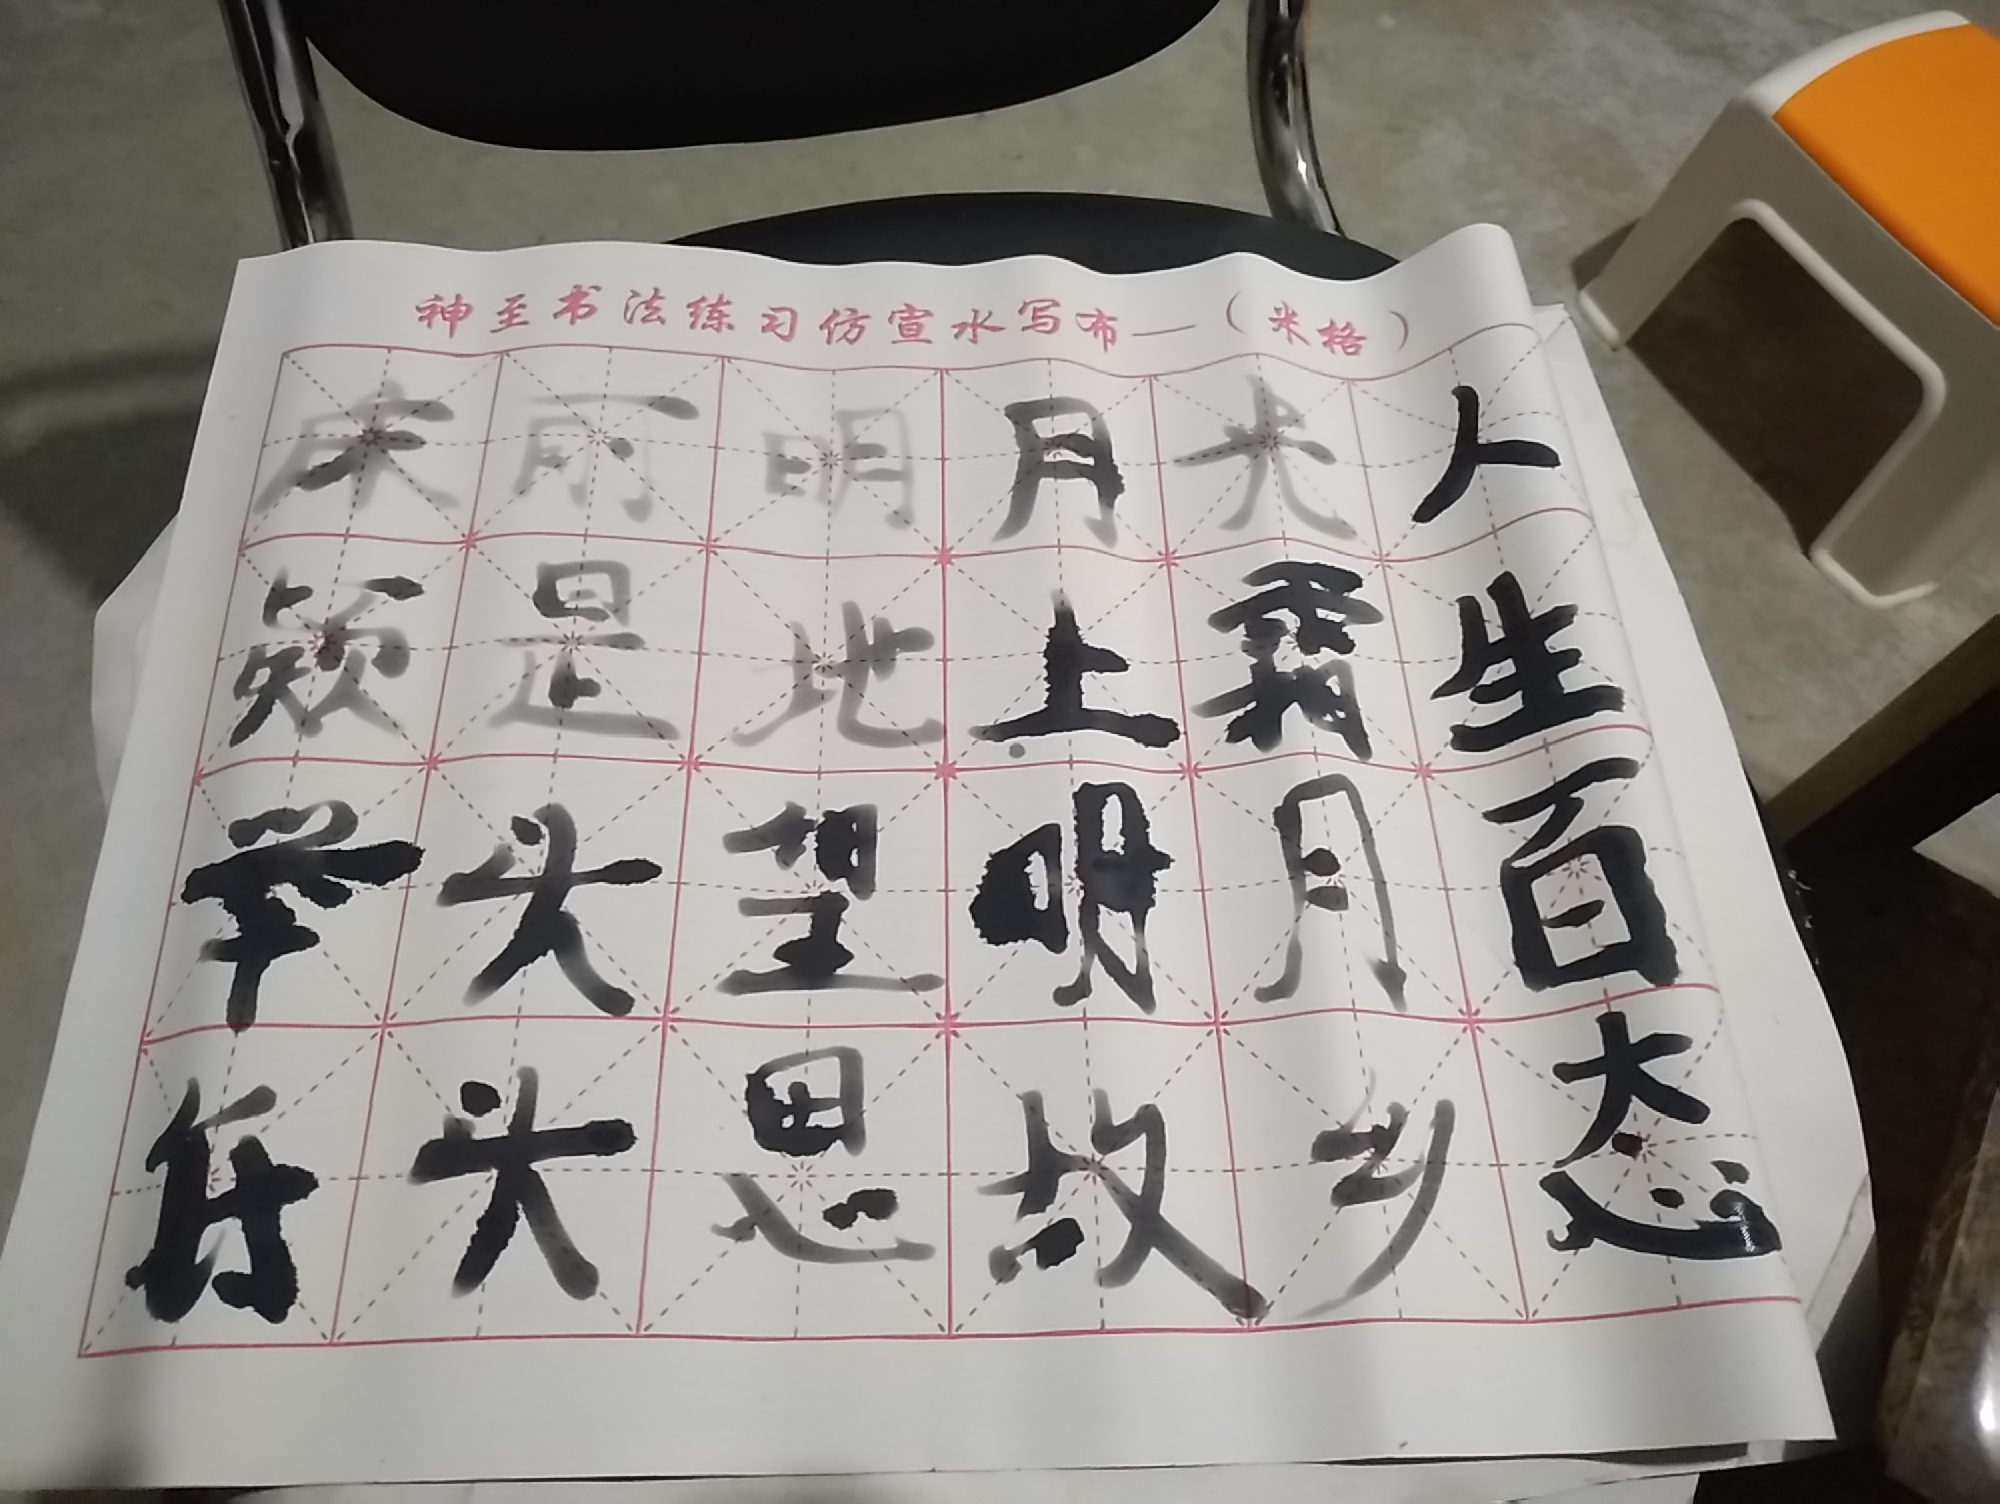 神至书法练习仿宣水写布—（米格）
床前明月光人
疑是地上霜生
举头望明月百
低头思故乡态